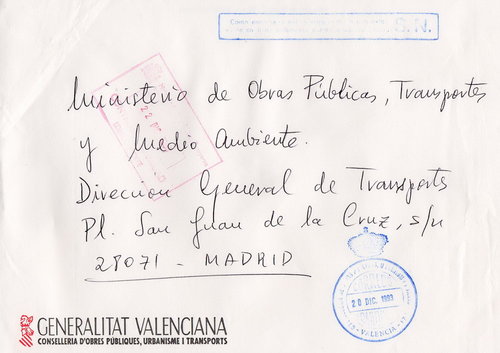 S.N.
Ministerio de Obras Públicas, Transportes
y Medio Ambiente.
Direccion General de Transports
Pl. San Juan de la Cruz, s/n
28071 - MADRID
20 DIC. 1993
VALENCIA
GENERALITAT VALENCIANA
CONSELLERIA D'OBRES PÚBLIQUES, URBANISME I TRANSPORTS